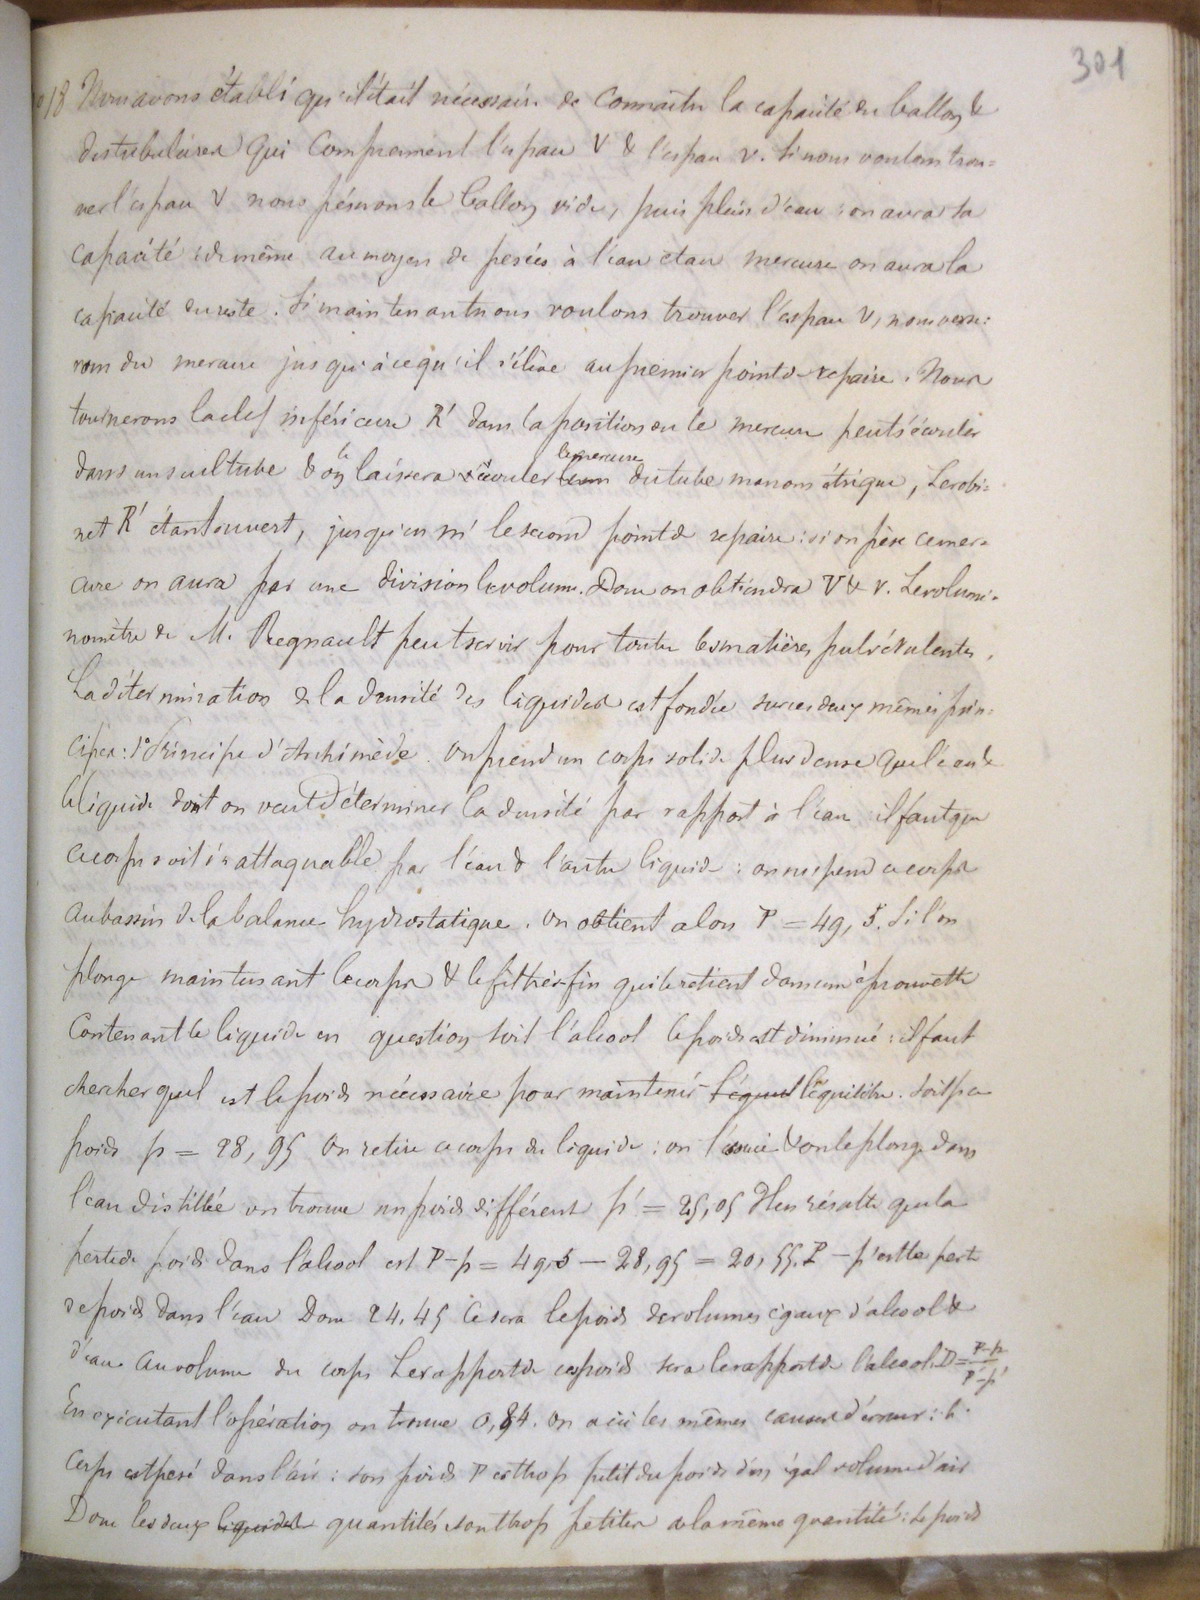 301
018 Nous avons établi qu'il était nécessaire de connaître la capacité du ballon &
des tubulures qui comprennent l'espace V & l'espace v. Si nous voulons trou=
ver l'espace V nous péserons le ballon vide, puis plein d'eau : on aura sa
capacité : de même au moyen de pesées à l'eau et au mercure on aura la
capacité du reste. Si maintenant nous voulons trouver l'espace v, nous verse=
rons du mercure jusqu'à ce qu'il s'élève au premier point de repaire. Nous
tournerons la clef inférieure R' dans la position où le mercure peut s'écouler
dans un seul tube & on laissera s'écouler le mercure du tube manométrique, le robi=
net R' étant ouvert, jusqu'en m' le second point de repaire : si on pèse ce mer=
cure on aura par une division le volume. Donc on obtiendra V & v. Le volumé=
nomètre de M. Regnault peut servir pour toutes les matières pulvérulentes.
La détermination de la densité des liquides est fondée sur ces deux mêmes prin=
cipes : 1° Principe d'Archimède. On prend un corps solide plus dense que l'eau &
le liquide dont on veut déterminer la densité par rapport à l'eau il faut que
ce corps soit inattaquable par l'eau & l'autre liquide : on suspend ce corps
au bassin de la balance hydrostatique. On obtient alors P = 49,5. Si l'on
plonge maintenant le corps & le fil très-fin qui le retient dans une éprouvette
contenant le liquide en question soit l'alcool le poids est diminué : il faut
chercher quel est le poids nécessaire pour maintenir l'équil l'équilibre. Soit ce
poids p = 28,95 On retire ce corps du liquide : on l'essuie & on le plonge dans
l'eau distillée on trouve un poids différent p' = 25,05 Il en résulte que la
perte de poids dans l'alcool est P-p = 49,5 — 28,95 = 20,55. P — p' est la perte
de poids dans l'eau Donc 24,45 Ce sera le poids de volumes égaux d'alcool &
d'eau au volume du corps Le rapport de ces poids sera le rapport de l'alcool. D = P-p / P-p'
En exécutant l'opération on trouve 0,84. On a ici les mêmes causes d'erreur : le
corps est pesé dans l'air : son poids P est trop petit du poids d'un égal volume d'air
Donc les deux liquides quantités sont trop petites de la même quantité : Le poids